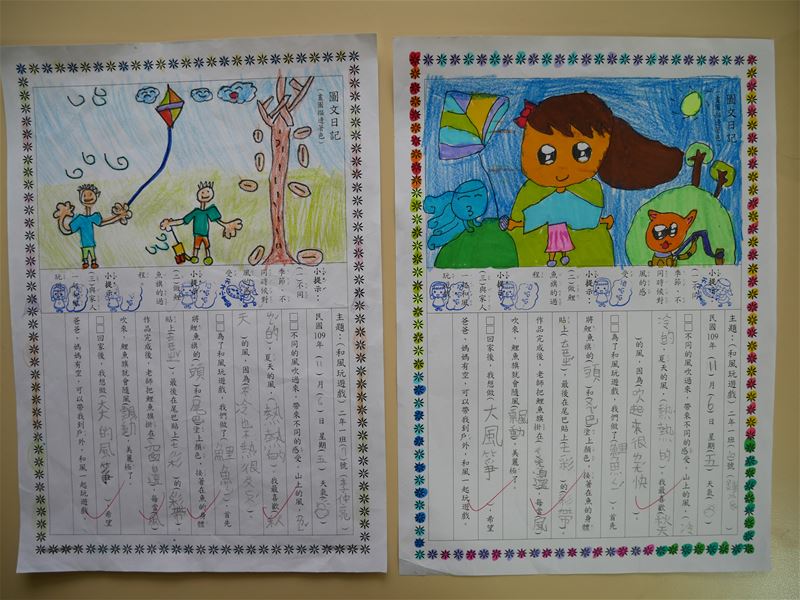 圖文日記
(畫圖描邊著色)
小提示：
(一)不同
季節，不
同時候對
風的感
受
(二)做鯉
魚旗的過
程。
(三)與家人
一起和風
玩
主題：(和風玩遊戲) 二年一班
民國109年(11)月 日 星期(五) 天氣
不同的風吹過來，帶來不同的感受，山上的風，
的)，夏天的風，(熱熱的)，我最喜歡(秋
天)的風，因為(不冷也不熱很
為了和風玩遊戲，我們做了(鯉魚)，首先
將鯉魚的(頭)和(尾巴)塗上顏色，接著在魚的身體
貼上 ，最後在尾巴貼上 的(彩帶)，
作品完成後，老師把鯉魚旗掛在 邊，每當(風)
吹來，鯉魚旗就會隨風(飄動)，美麗極了。
回家後，我想做(大大的風箏)，希望
爸爸、媽媽有空，可以帶我到戶外，和風一起玩遊戲。
圖文日記
(畫圖描邊著色)
小提示：
(一)不同
季節，不
同時候對
風的感
受
(二)做鯉
魚旗的過
程。
(三)與家人
一起和風
玩
主題：(和風玩遊戲) 二年一班
民國109年(11)月(6)日 星期(五) 天氣
不同的風吹過來，帶來不同的感受，山上的風，(冷
冷的)，夏天的風，(熱熱的)，我最喜歡(秋天
)的風，因為(吹起來很 快
為了和風玩遊戲，我們做了(鯉魚 )，首先
將鯉魚的(頭)和(尾巴)塗上顏色，接著在魚的身體
貼上 ，最後在尾巴貼上(五彩)的(彩帶)，
作品完成後，老師把鯉魚旗掛在 邊，每當(風)
吹來，鯉魚旗就會隨風(飄動)，美麗極了。
回家後，我想做(大風箏)，希望
爸爸、媽媽有空，可以帶我到戶外，和風一起玩遊戲。